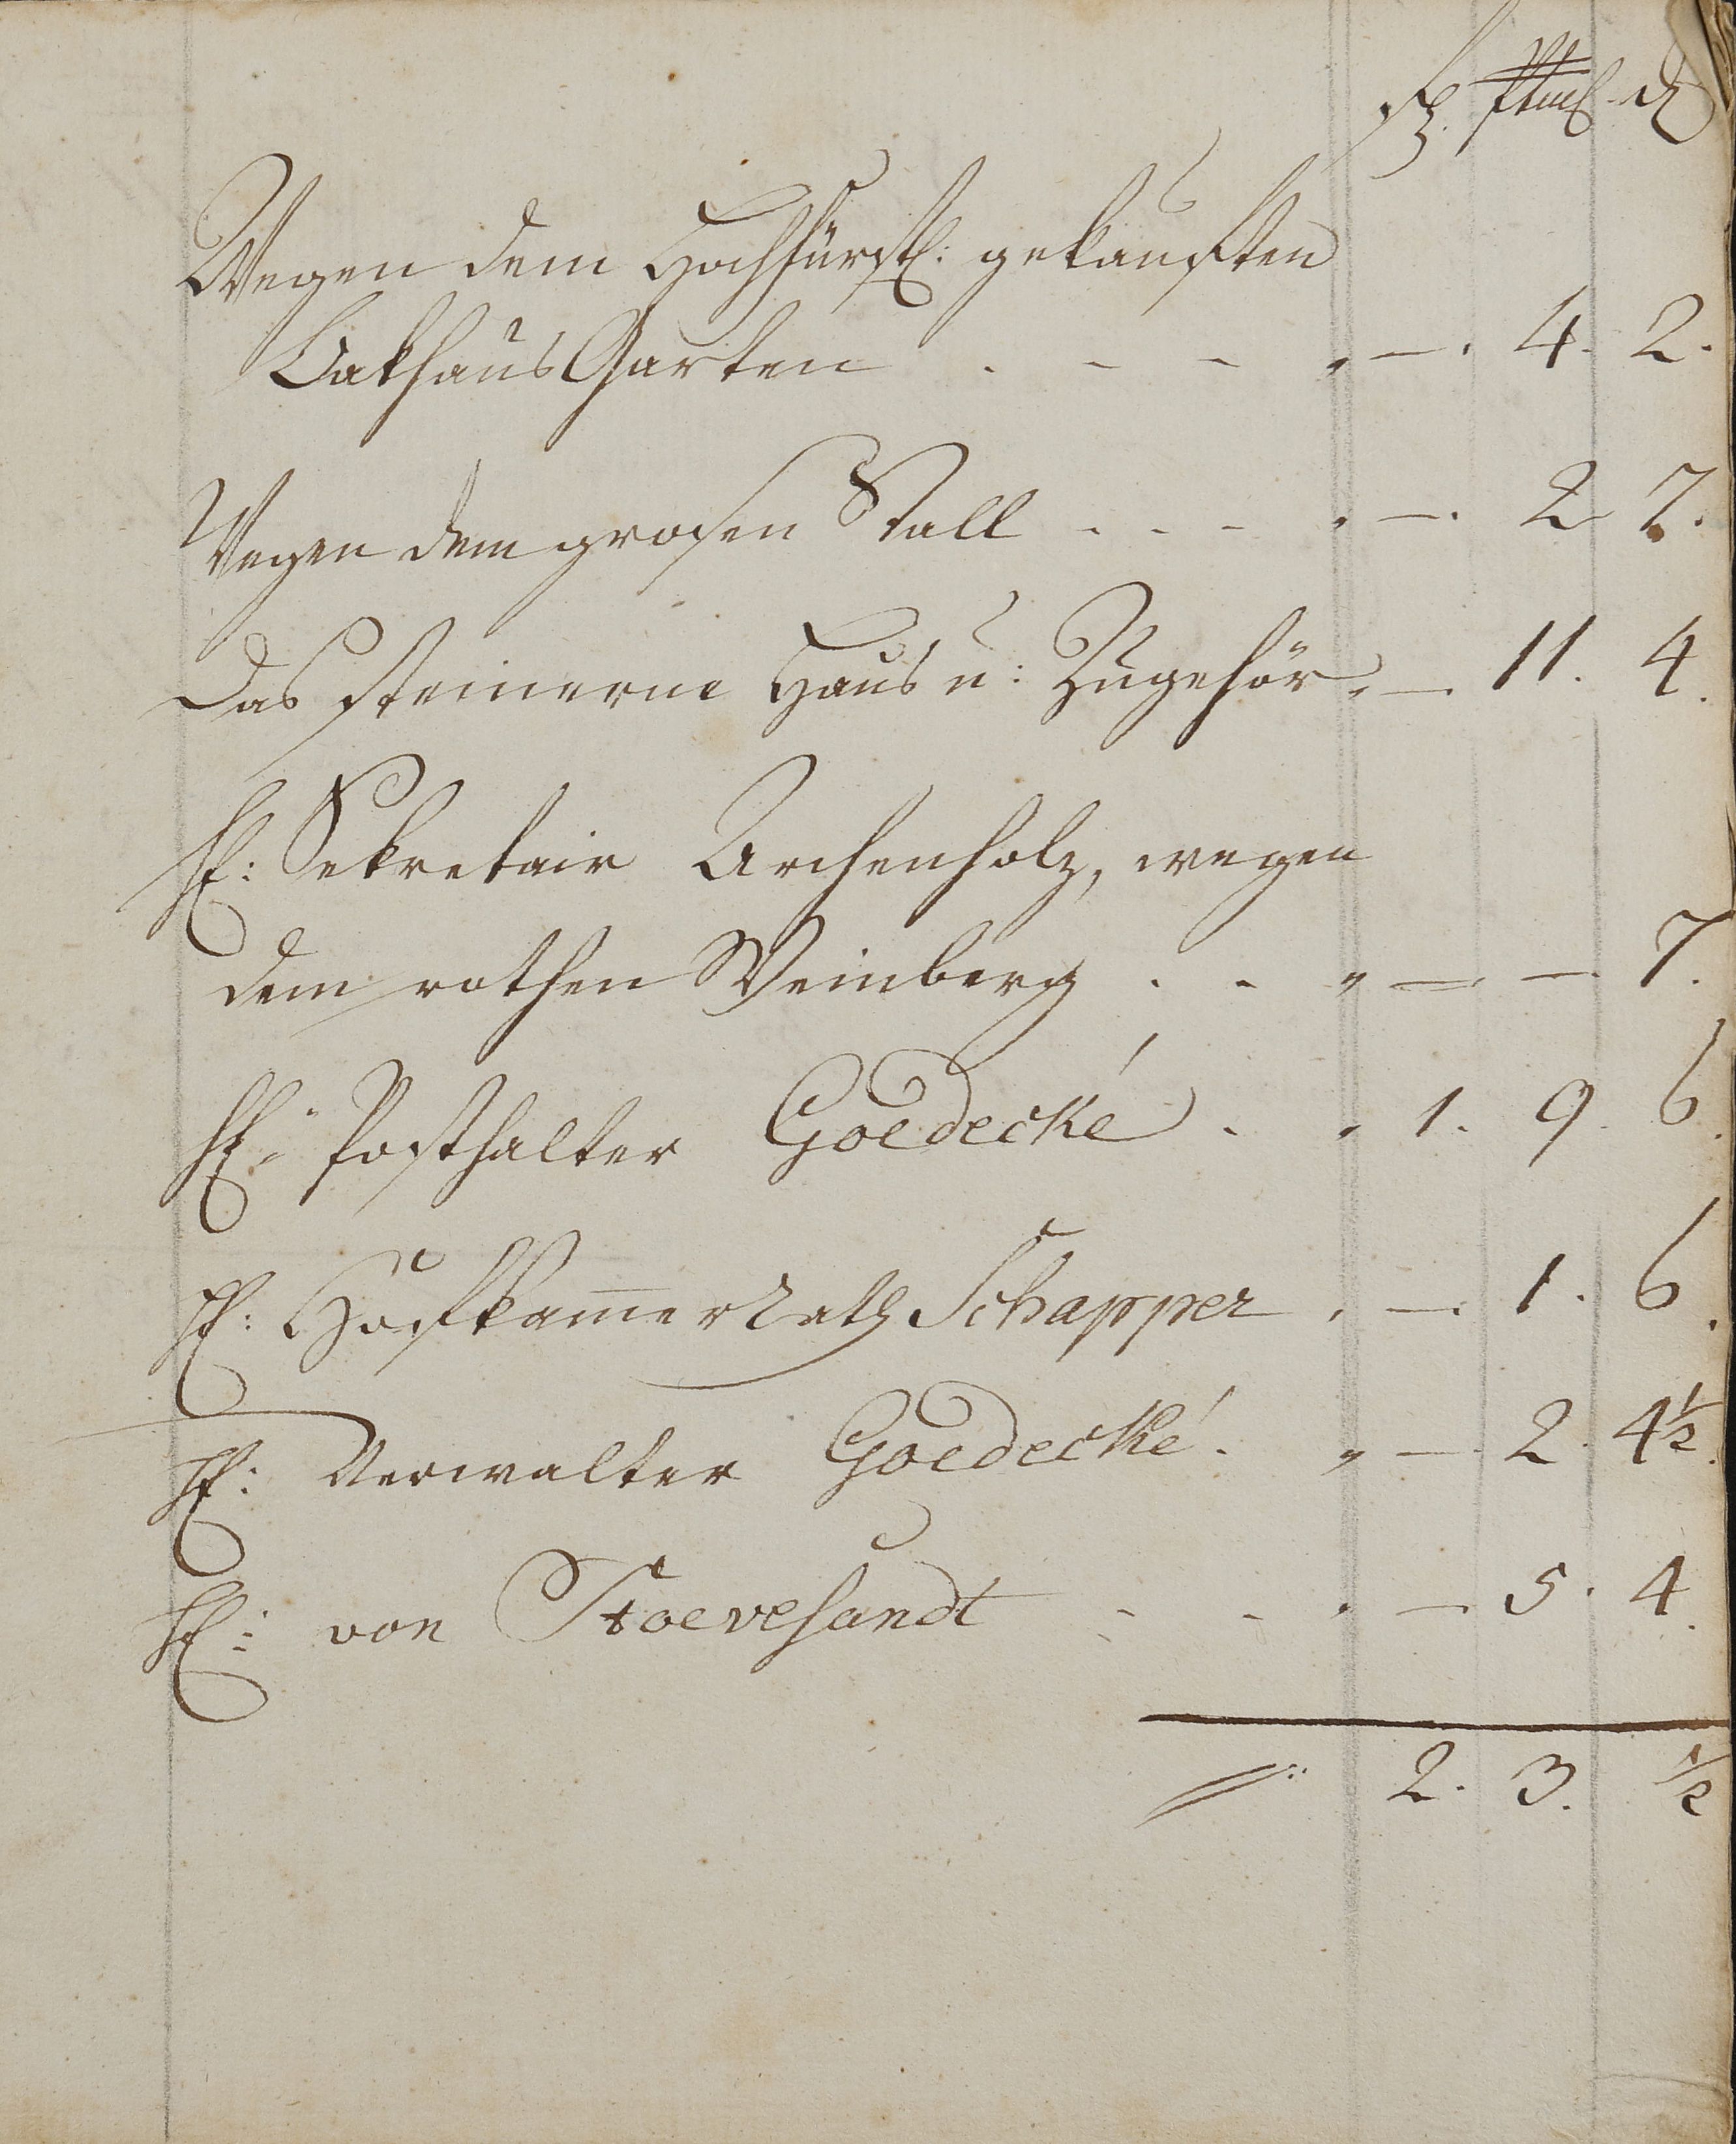 Wegen dem Hochfürstl: gekauften
Bakhaus Garten . - - " —. 4. 2.
Wegen dem grosen Stall . . - . —. 2 7.
Das steinerne Haus u: Zugehör " —. 11. 4.
H: Sekretair Archenholz, wegen
dem rothen Weinberg . - " — —. 7.
H: Posthalter Goedecké . " 1. 9. 6.
H: Hofkam̅errath Schapper . —. 1. 6.
H: Verwalter Goedecké . " — 2. 4½.
H: von Stoevesandt - - . — 5. 4.
2. 3. ½